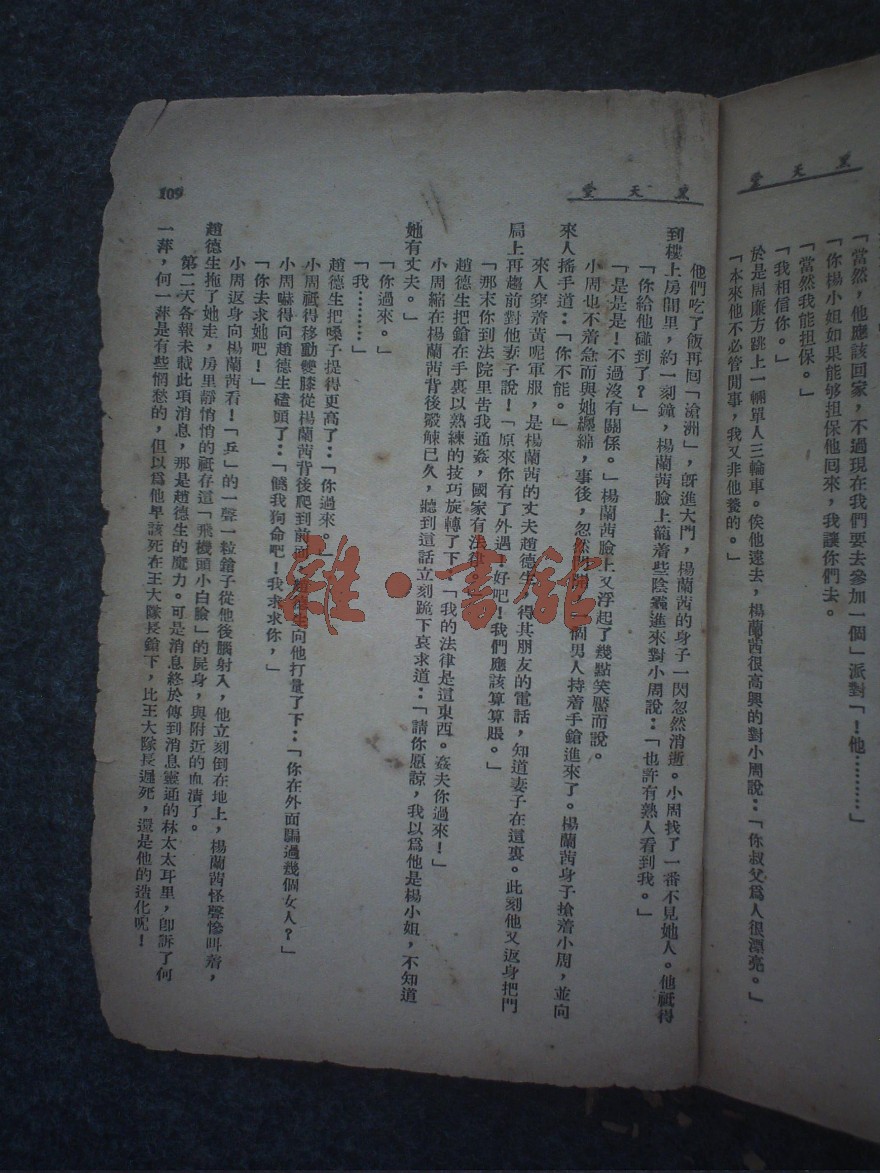 黑天堂
「當然，他應該回家，不過現在我們要去參加一個」派對「！他………」
「你楊小姐如果能够担保他回來，我讓你們去。
「當然我能担保。」
「我相信你。」
於是周廉方跳上一輛單人三輪車。俟他遠去，楊蘭茜很高興的對小周說：「你叔父爲人很漂亮。」
「本來他不必管閒事，我又非他養的。」
黑天堂
他們吃了飯再囘「滄洲」，旣進大門，楊蘭茜的身子一閃忽然消逝。小周找了一番不見她人。他祗得
到樓上房間里，約一刻鐘，楊蘭茜臉上籠着些陰霾進來對小周說：「也許有熟人看到我。」
「你給他碰到了？」
「是是是！不過沒有關係。」楊蘭茜臉上又浮起了幾點笑靨而說。
小周也不着急而與她纒綿，事後，忽然 個男人持着手鎗進來了。楊蘭茜身子搶着小周，並向
來人搖手道：「你不能。」
來人穿着黃呢軍服，是楊蘭茜的丈夫趙德生，得其朋友的電話，知道妻子在這裏。此刻他又返身把門
局上再趨前對他妻子說！「原來你有了外遇！好吧！我們應該算算賬。」
「那末你到法院里告我通姦，國家有法律
趙德生把鎗在手裏以熟練的技巧旋轉了下「我的法律是這東西。姦夫你過來！」
小周縮在楊蘭茜背後觳觫已久，聽到這話立刻跪下哀求道：「請你愿諒，我以爲他是楊小姐，不知道
她有丈夫。」
「你過來。」
「我………」
趙德生把嗓子提得更高了：「你過來。」
小周祗得移動雙膝從楊蘭茜背後爬到前面，趙德生向他打量了下：「你在外面騙過幾個女人？」
小周嚇得向趙德生磕頭了：「饒我狗命吧！我求求你，」
「你去求她吧！」
小周返身向楊蘭茜看！「乒」的一聲一粒鎗子從他後腦射入，他立刻倒在地上，楊蘭茜怪聲慘叫着，
趙德生拖了她走，房里靜悄悄的祗存這「飛機頭小白臉」的屍身，與附近的血漬了。
第二天各報未載此項消息，那是趙德生的魔力。可是消息終於傳到消息靈通的林太太耳里，卽訴了何
一萍，何一萍是有些惆愁的，但以爲他早該死在王大隊長鎗下，比王大隊長遲死，還是他的造化呢！
109
雜·書館